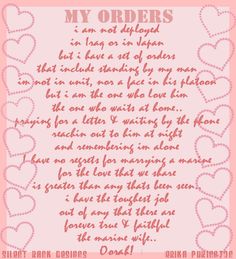 MY ORDERS
i am not deployed
in Iraq or in Japan
but i have a set of orders
that include standing by my man
im not in unit, nor a face in his platoon
but i am the one who love him
the one who waits at home..
praying for a letter & waiting by the phone
reachin out to him at night
and remembering in alone
I have no regrets for marrying a marine
for the love that we share
is greater than any thats been seen..
i have the toughest job
out of any that there are
forever true & faithful
the marine wife..
Oorah!